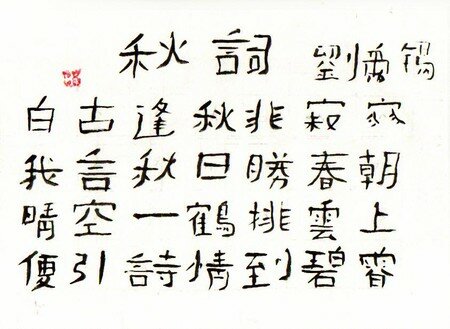 秋詞 劉禹錫
白古逢秋非寂寥
我言秋日勝春朝
晴空一鶴排雲上
便引詩情到碧霄